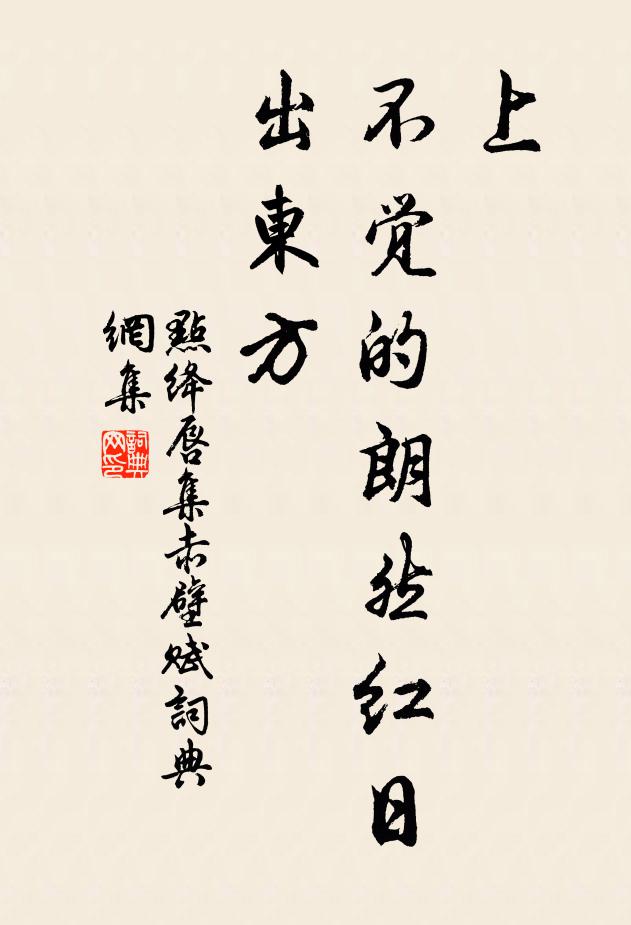 上
不觉的朗然红日
出東方
點絳唇集赤壁赋詞典
網集
詞典
网印